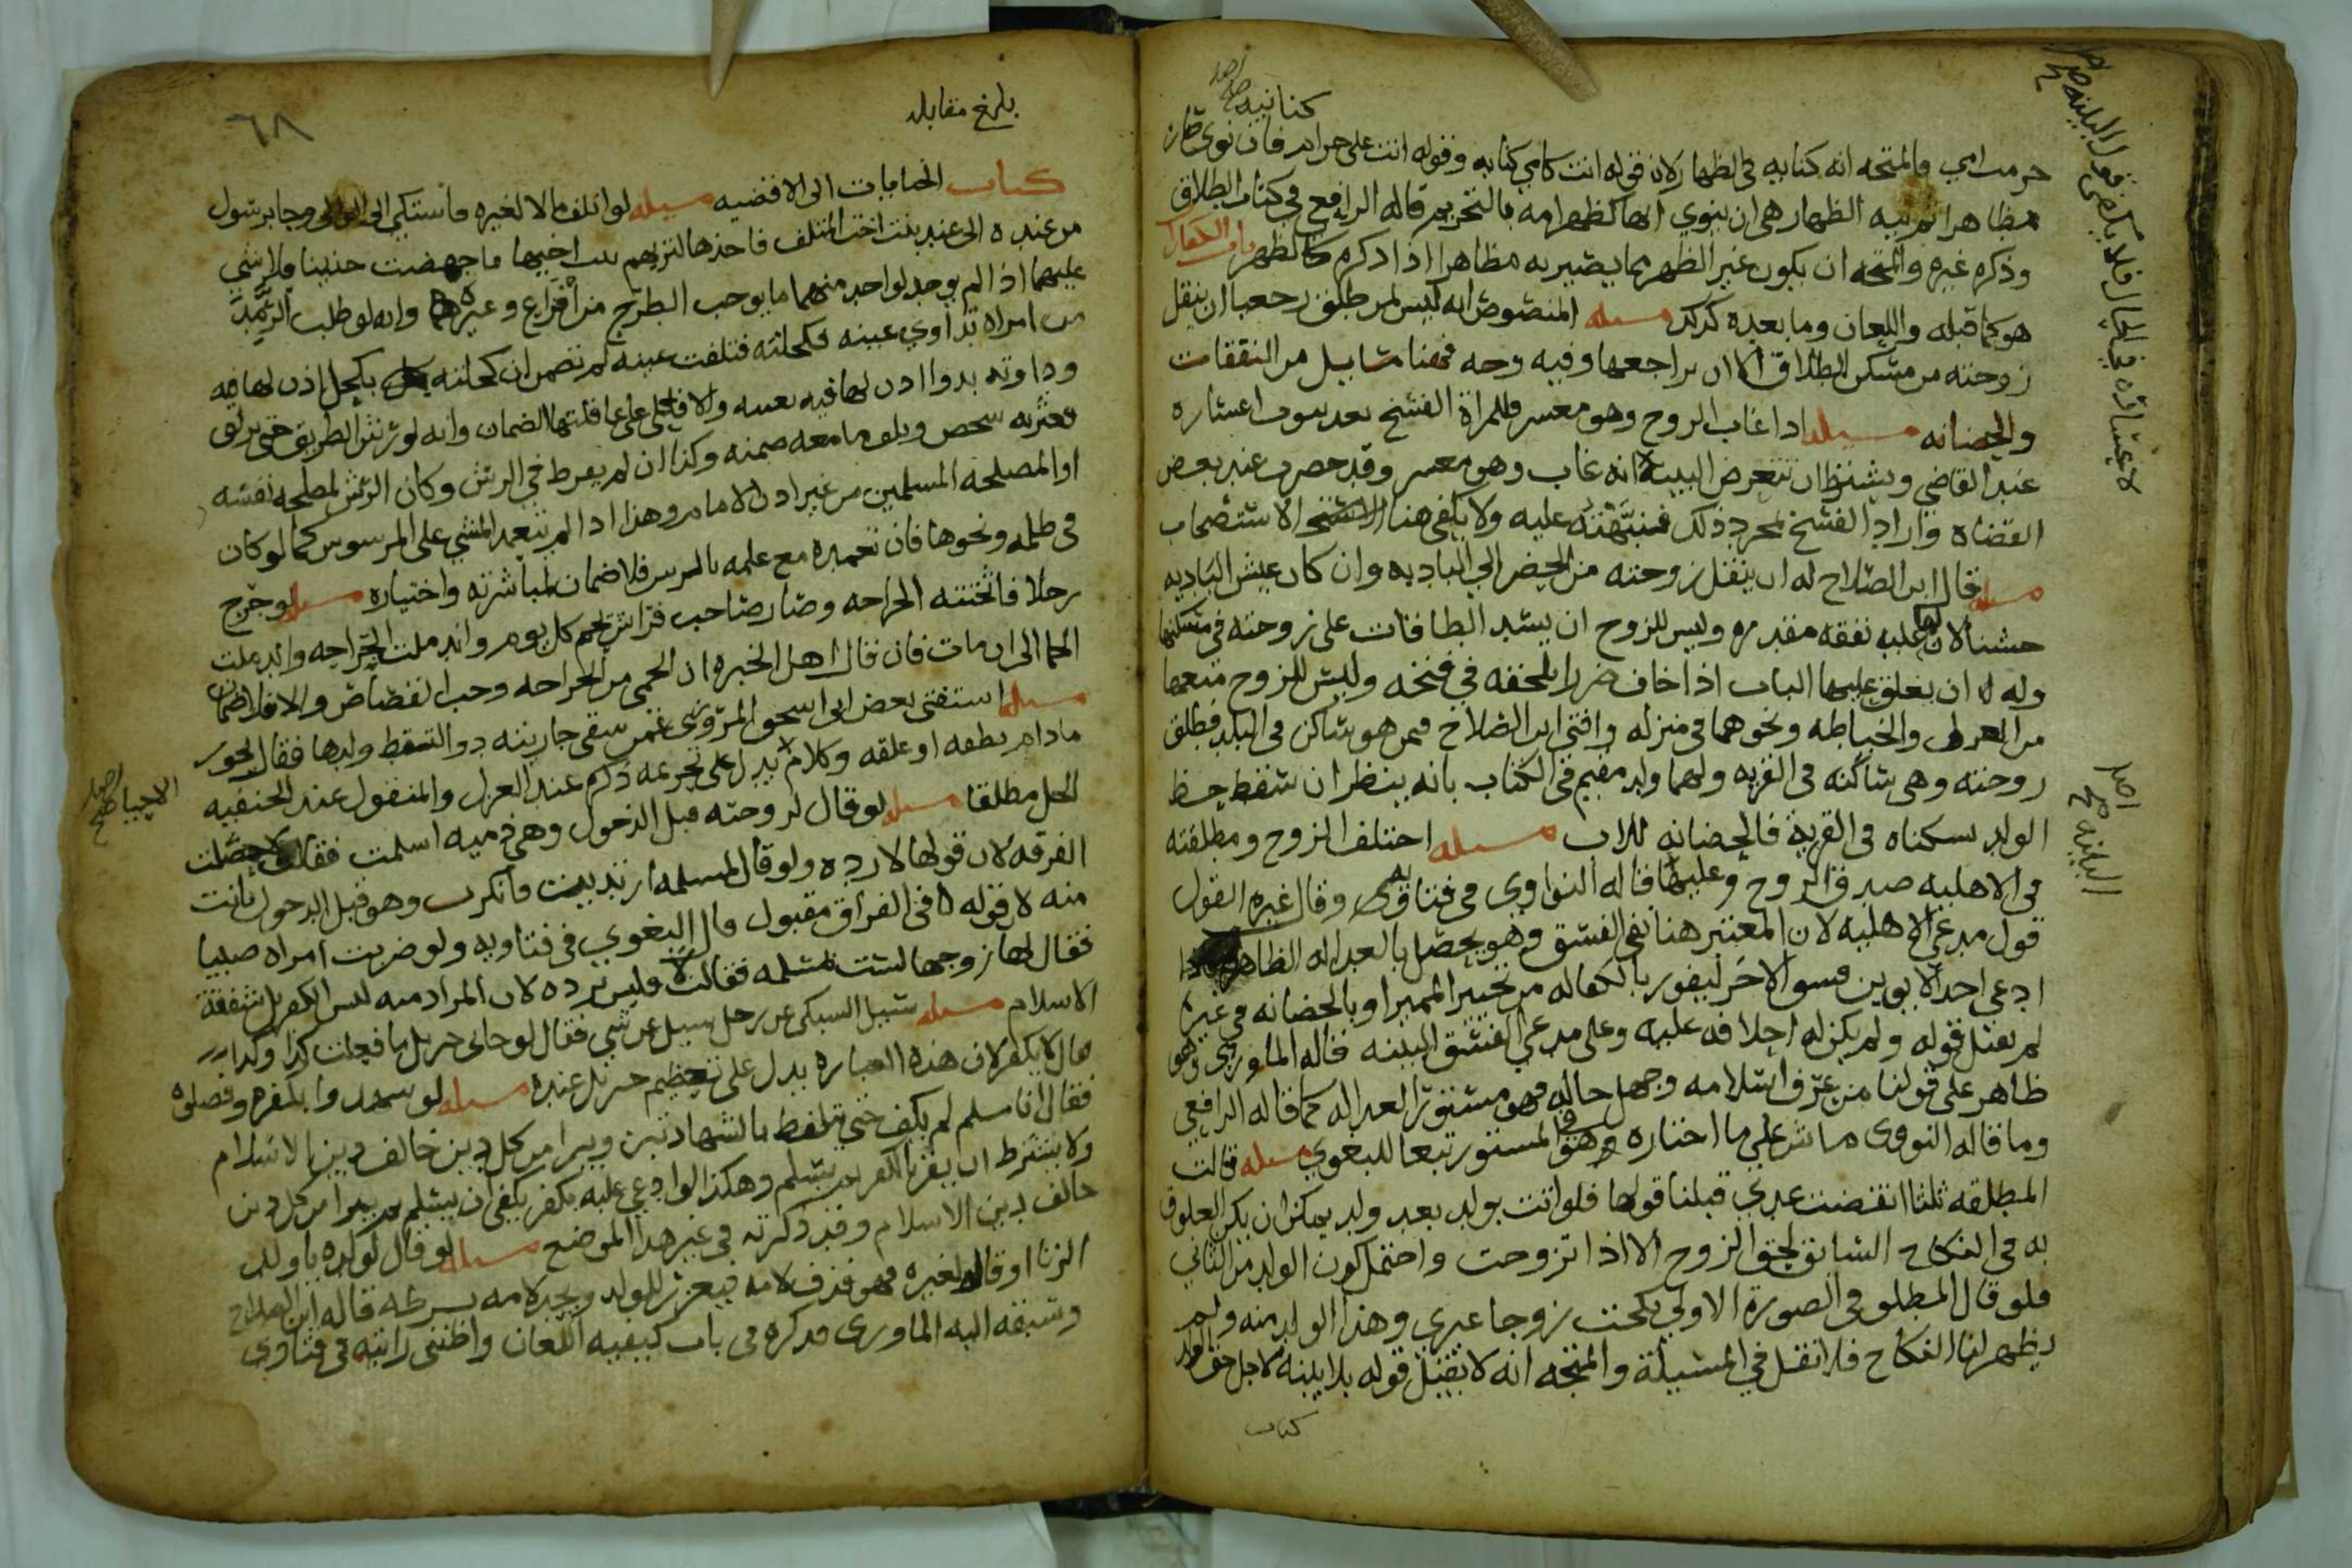 كنانيه صح اصل
حرمت امي والمتجه انه كنايه في الظهار لان قوله انت كامي كنايه وقوله انت على حرام فان نوى كان
مظاهرا ثم نيه الظهار هي ان ينوي انها كظهر امه بالتحريم قاله الرافعي في كتاب الطلاق
وذكره غيره والمتجه ان يكون غير الظهر مما يصير به مظاهرا اذا ذكره كالظهر باب اللعان
هو كما قبله واللعان وما بعده كذلك مسله المنصوص انه ليس لمن طلق رجعيا ان ينقل
زوجته من مسكن الطلاق الا ان يراجعها وفيه وجه وهنا مسايل من النفقات
والحضانه مسيله اذا غاب الزوج وهو معسر فللمراة الفسخ بعد ثبوت اعساره
عند القاضي ويشترط ان تتعرض البينة انه غاب وهو معسر وقد حضرت عند بعض
القضاه واراد الفسخ لمجرد ذلك فنبهته عليه ولا يكفي هنا الاستصحاب
مسله قال ابن الصلاح له ان ينقل زوجته من الحضر الي الباديه وان كان عيش الباديه
خشنا لان لها عليه نفقه مقدره وليس للزوج ان يسد الطاقات على زوجته في مسكنها
وله ان يغلق عليها الباب اذا خاف ضررا يلحقه في فتحه وليس للزوج منعها
من الغزل والخياطه ونحوهما في منزله وافتى ابن الصلاح فيمن هو ساكن في البلد فطلق
زوجته وهي ساكنه في القريه ولهما ولد مقيم في الكتاب بانه ينظر ان سقط حظ
الولد بسكناه في القرية فالحضانه للاب مسله اختلف الزوج ومطلقته
في الاهليه صدق الزوج وعليها قاله النواوي في فتاويه وقال غيره القول
قول مدعي الاهليه لان المعتبر هنا نفي الفسق وهو يحصل بالعداله الظاهره
ادعى احد الابوين فسق الاخر ليفوز بالكفاله من تخيير المميز او بالحضانه في غيره
لم يقبل قوله ولم يكن له احلافه عليه وعلى مدعي الفسق البينه قاله الماوردي وهو
ظاهر على قولنا من عرف اسلامه وجهل حاله فهو مستور العداله كما قاله الرافعي
وما قاله النووي ماش على ما اختاره في المستور تبعا للبغوي مسله قالت
المطلقه ثلثا انقضت عدتي قبلنا قولها فلو اتت بولد بعد ولد يمكن ان يكن العلوق
به في النكاح السابق لحق الزوج الا اذا تزوجت واحتمل كون الولد من الثاني
فلو قال المطلق في الصورة الاولى نكحت زوجا غيري وهذا الولد منه ولم
يظهر لنا النكاح فلا نقل في المسيلة والمتجه انه لا يقبل قوله بلا بينه لاجل حق الولد
كتاب
لاعساره في الحال فلا يكفي قول البينه صح اصل
البينه صح اصل
بلغ مقابله
٦٨
كتاب الجنايات الى الاقضيه مسيله لو اتلف مالا لغيره فاستكى الى الوالي وجا برسول
من عنده الى عند بنت اخت المتلف فاخذها لتريهم بيت اخيها فاجهضت جنينا فلا شي
عليهما اذا لم يوجد لواحد منهما ما يوجب الطرح من افزاع وغيره وانه لو طلب الرمد
من امراه تداوي عينه فكحلته فتلفت عينه لم تضمن ان كحلته بكحل اذن لها فيه
وداوته بدوا اذن لها فيه بعينه والا فعلى عاقلتها الضمان وانه لو رش الطريق حتى زلق
فعثر به شخص وتلف ما معه ضمنه وكذا ان لم يفرط في الرش وكان الرش لمصلحه نفسه
او المصلحه المسلمين من غير اذن الامام وهذا اذا لم يتعمد المشي على المرسوس كما لو كان
في ظلمه ونحوها فان تعمده مع علمه بالرس فلا ضمان لمباشرته واختياره مسله لو جرح
رجلا فاثخنته الجراحه وصار صاحب فراش يحم كل يوم واندملت الجراحه واند ملت
الحما الى ان مات فان قال اهل الخبره ان الحمى من الجراحه وجب القصاص والا فلا ضمان
مسله استفتى بعض ابي اسحق المروزي عمن سقى جاريته دوا لتسقط ولدها فقال يجوز
مادام نطفه او علقه وكلام يدل على تحريمه ذكره عند العزل والمنقول عند الحنفيه
الاحيا صح اصل
الحل مطلقا مسله لو قال لزوجته قبل الدخول وهي ذميه اسلمت فقالت لا حصلت
الفرقه لان قولها لا رده ولو قال لمسلمه ارتددت فانكرت وهو قبل الدخول بانت
منه لان قوله في الفراق مقبول قال البغوي في فتاويه ولو ضربت امراه صبيا
فقال لها زوجها لست بمسلمه فقالت لا فليس برده لان المراد منه ليس الكفر بل شفقة
الاسلام مسله سيل السبكي عن رجل سيل عن شي فقال لو جاني جبريل ما فعلت كذا وكذا
قال لا يكفر لان هذه العباره تدل على تعظيم جبريل عنده مسله لو شهدوا بكفره وفصلوه
فقال انا مسلم لم يكف حتى يتلفظ بالشهادتين ويبرا من كل دين خالف دين الاسلام
ولا يشترط ان يقر بالكفر ثم يسلم وهكذا لو ادعي عليه بكفر يكفى ان يسلم ثم يبرا من كل دين
خالف دين الاسلام وقد ذكرته في غير هذا الموضع مسله لو قال لولده يا ولد
الزنا او قاله لغيره فهو قذف لامه فيعزر للولد ويحد لامه بشرطه قاله ابن الصلاح
وسبقه اليه الماوردي فذكره في باب كيفيه اللعان واظنني رايته في فتاوي